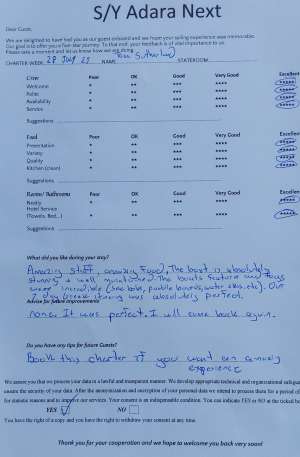 S/Y Adara Next
Dear Guest,
We are delighted to have had you as our guest onboard and we hope your sailing experience was memorable.
Our goal is to offer you a five-star journey. To that end, your feedback is of vital importance to us.
Please take a moment and let us know how we are doing
CHARTER WEEK: 28 July 23 NAME Sutherland STATEROOM
Crew Poor OK Good Very Good Excellent
Welcome * ** *** **** *****
Polite * ** *** **** *****
Availability * ** *** **** *****
Service * ** *** **** *****
Suggestions
Food Poor OK Good Very Good Excellent
Presentation * ** *** **** *****
Variety * ** *** **** *****
Quality * ** *** **** *****
Kitchen (clean) * ** *** **** *****
Suggestions
Rooms/ Bathrooms Poor OK Good Very Good Excellent
Neatly * ** *** **** *****
Hotel Service
(Towels, Bed,..) * ** *** **** *****
Suggestions
What did you like during your stay?
Amazing staff, amazing food, The boat is absolutely
stunning & well maintained. The boats features and toys
were incredible (sea bobs, paddle boards, water skis, etc). Our
7 day Greek itinerary was absolutely perfect.
Advice for future improvements
none. It was perfect. I will come back again.
Do you have any tips for future Guests?
Book this charter if you want an amazing
experience
We assure you that we process your data in a lawful and transparent manner. We develop appropriate technical and organizational safeguards
ensure the security of your data. After the anonymization and encryption of your personal data we intend to process them for a period of
for statistic reasons and to improve our services. Your consent is an indispensable condition. You can indicate YES or NO at the ticket box
YES NO
You have the right of a copy and you have the right to withdraw your consent at any time.
Thank you for your cooperation and we hope to welcome you back very soon!